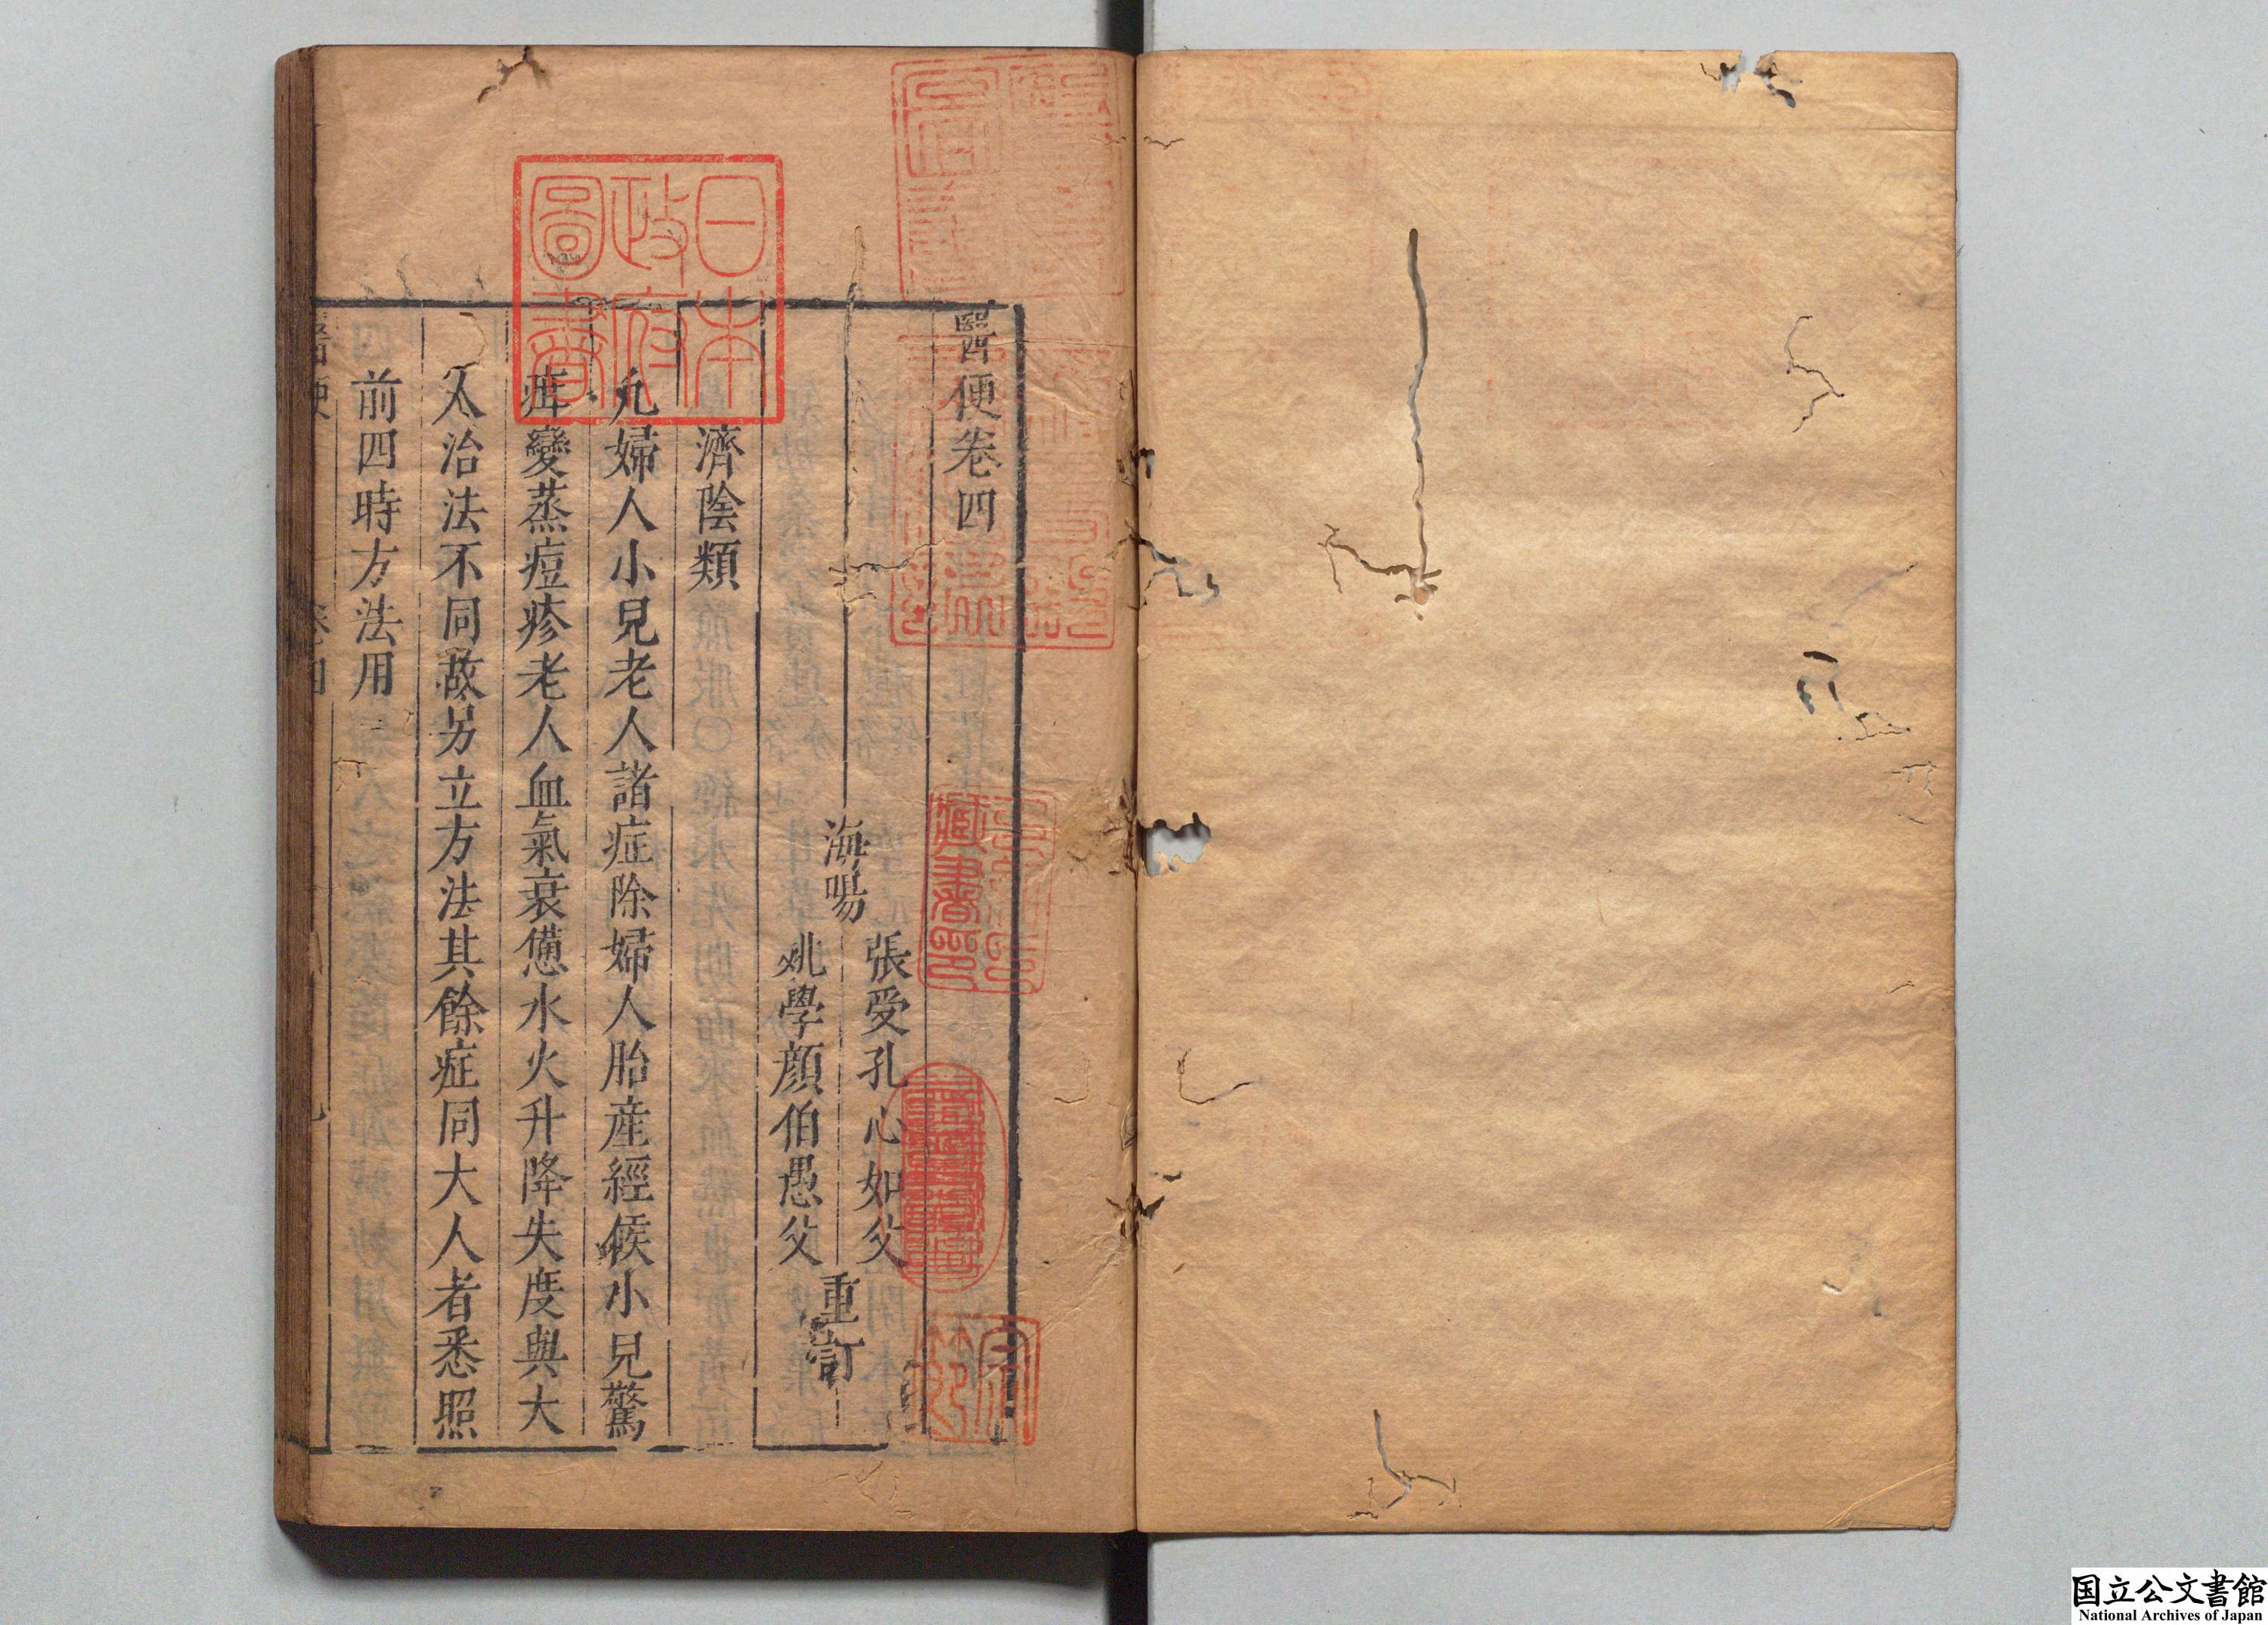 醫便卷四
海暘
張受孔心如父
姚學顏伯愚父
重訂
濟陰類
凡婦人小兒老人諸症除婦人胎產經候小兒驚
疳變蒸痘疹老人血氣衰憊水火升降失度與大
人治法不同故另立方法其餘症同大人者悉照
前四時方法用
醫便
卷四
日本
政府
圖書
藏書印
国立公文書館
National Archives of Japan